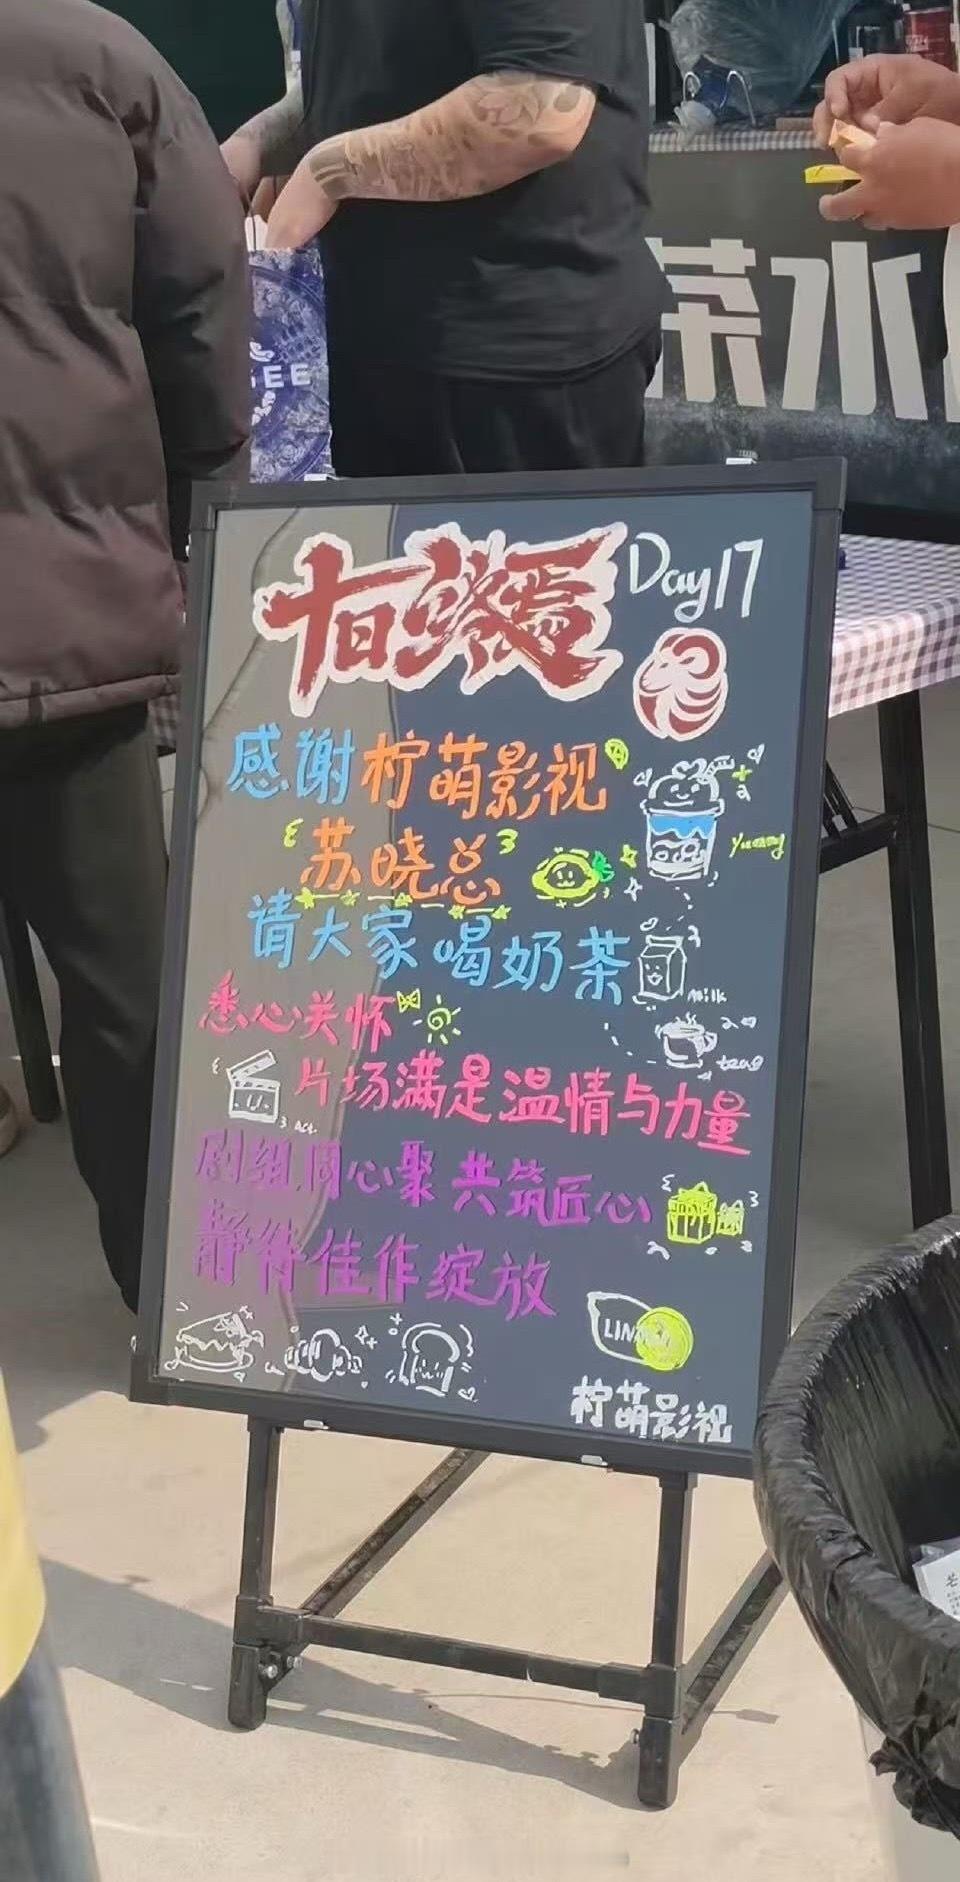 茶水
十日终焉 Day17
感谢柠萌影视
苏晓总
请大家喝奶茶
milk
悉心关怀
片场满是温情与力量
剧组同心聚 共筑匠心
静待佳作绽放
柠萌影视